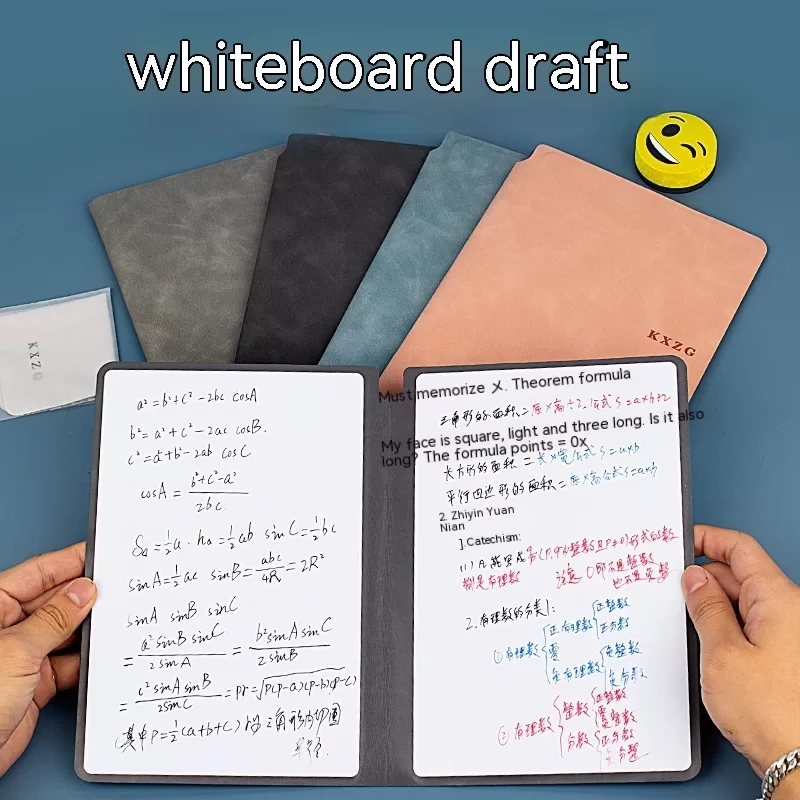 whiteboard draft
KXZG
KXZG
a² = b² + c² - 2bc cosA
b² = a² + c² - 2ac cosB.
c² = a² + b² - 2ab cosC
cosA = (b² + c² - a²) / 2bc.
S△ = 1/2 a · ha = 1/2 ab sinC = 1/2 bc
sinA = 1/2 ac sinB = abc / 4R = 2R²
sinA sinB sinC
= a² sinB sinC / 2 sinA = b² sinA sinC / 2 sinB
= c² sinA sinB / 2 sinC = pr = √p(p-a)(p-b)(p-c)
(其中 p = 1/2 (a+b+c) r为三角形内切圆
半径.
Must memorize 乄. Theorem formula
三角形的面积 = 底×高÷2. 公式 S = a×h÷2
My face is square, light and three long. Is it also
long? The formula points = 0x
长方形的面积 = 长×宽 公式 S = a×b
平行四边形的面积 = 底×高 公式 S = a×h
2. Zhiyin Yuan
Nian
].Catechism:
(1) 凡能写成 形式的数
都是有理数 注意 0即不是整数
也不是
2. 有理数的分类]:
① 有理数 { 正有理数 { 正整数
正分数
零
负有理数 { 负整数
负分数
② 有理数 { 整数 { 正整数
零
负整数
分数 { 正分数
负分数